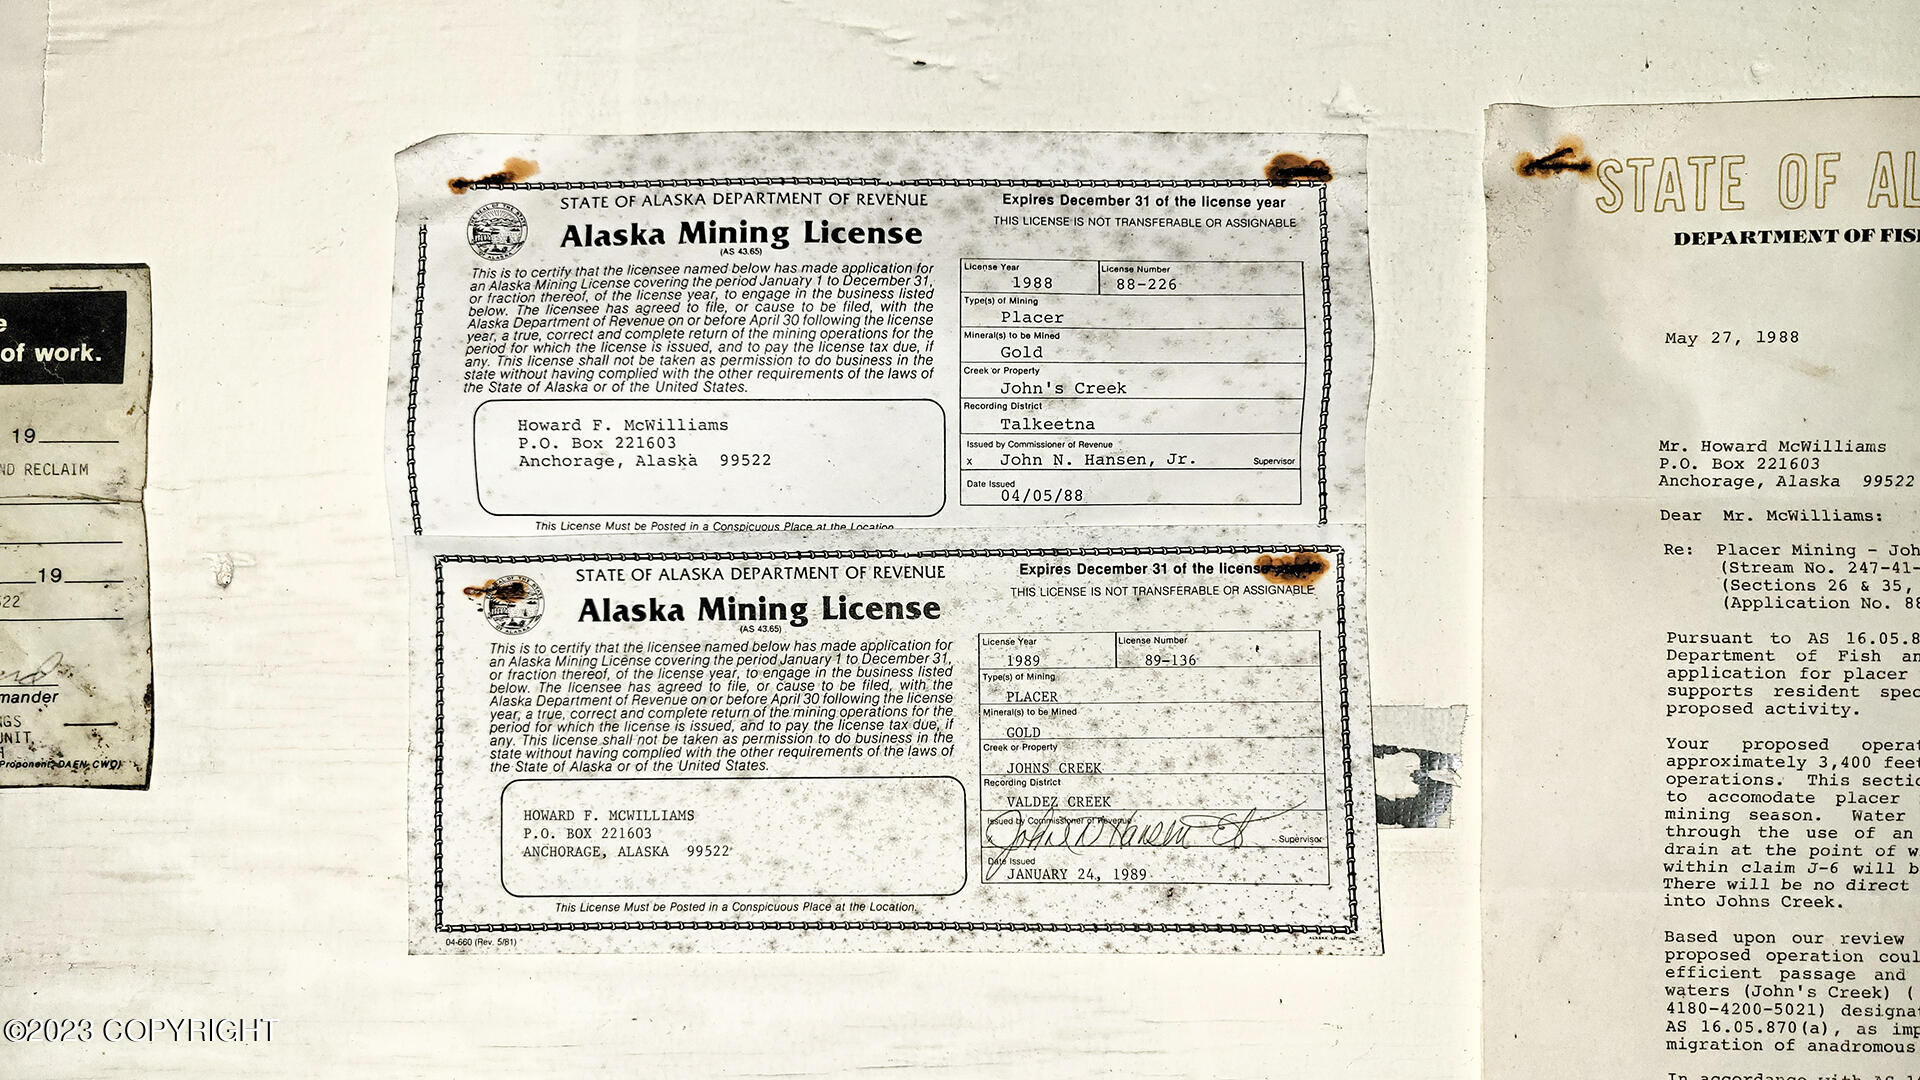 e
of work.
19
ND RECLAIM
19
522
mander
NGS
UNIT
H
Proponent: DAEN-CWO)
STATE OF ALASKA DEPARTMENT OF REVENUE
Alaska Mining License
(AS 43.65)
This is to certify that the licensee named below has made application for
an Alaska Mining License covering the period January 1 to December 31,
or fraction thereof, of the license year, to engage in the business listed
below. The licensee has agreed to file, or cause to be filed, with the
Alaska Department of Revenue on or before April 30 following the license
year, a true, correct and complete return of the mining operations for the
period for which the license is issued, and to pay the license tax due, if
any. This license shall not be taken as permission to do business in the
state without having complied with the other requirements of the laws of
the State of Alaska or of the United States.
Howard F. McWilliams
P.O. Box 221603
Anchorage, Alaska 99522
This License Must be Posted in a Conspicuous Place at the Location
Expires December 31 of the license year
THIS LICENSE IS NOT TRANSFERABLE OR ASSIGNABLE
License Year
License Number
1988
88-226
Type(s) of Mining
Placer
Mineral(s) to be Mined
Gold
Creek or Property
John's Creek
Recording District
Talkeetna
Issued by Commissioner of Revenue
x John N. Hansen, Jr. Supervisor
Date Issued
04/05/88
STATE OF ALASKA DEPARTMENT OF REVENUE
Alaska Mining License
(AS 43.65)
This is to certify that the licensee named below has made application for
an Alaska Mining License covering the period January 1 to December 31,
or fraction thereof, of the license year, to engage in the business listed
below. The licensee has agreed to file, or cause to be filed, with the
Alaska Department of Revenue on or before April 30 following the license
year, a true, correct and complete return of the mining operations for the
period for which the license is issued, and to pay the license tax due, if
any. This license shall not be taken as permission to do business in the
state without having complied with the other requirements of the laws of
the State of Alaska or of the United States.
HOWARD F. MCWILLIAMS
P.O. BOX 221603
ANCHORAGE, ALASKA 99522
This License Must be Posted in a Conspicuous Place at the Location.
04-660 (Rev. 5/81)
Expires December 31 of the license
THIS LICENSE IS NOT TRANSFERABLE OR ASSIGNABLE
License Year
License Number
1989
89-136
Type(s) of Mining
PLACER
Mineral(s) to be Mined
GOLD
Creek or Property
JOHNS CREEK
Recording District
VALDEZ CREEK
Issued by Commissioner of Revenue
x John N Hansen Supervisor
Date Issued
JANUARY 24, 1989
STATE OF AL
DEPARTMENT OF FIS
May 27, 1988
Mr. Howard McWilliams
P.O. Box 221603
Anchorage, Alaska 99522
Dear Mr. McWilliams:
Re: Placer Mining - Joh
(Stream No. 247-41-
(Sections 26 & 35,
(Application No. 88
Pursuant to AS 16.05.8
Department of Fish an
application for placer
supports resident spec
proposed activity.
Your proposed operat
approximately 3,400 feet
operations. This sectio
to accomodate placer
mining season. Water
through the use of an
drain at the point of w
within claim J-6 will b
There will be no direct
into Johns Creek.
Based upon our review
proposed operation coul
efficient passage and
waters (John's Creek) (
4180-4200-5021) designat
AS 16.05.870(a), as imp
migration of anadromous
In accordance with AS 16
©2023 COPYRIGHT